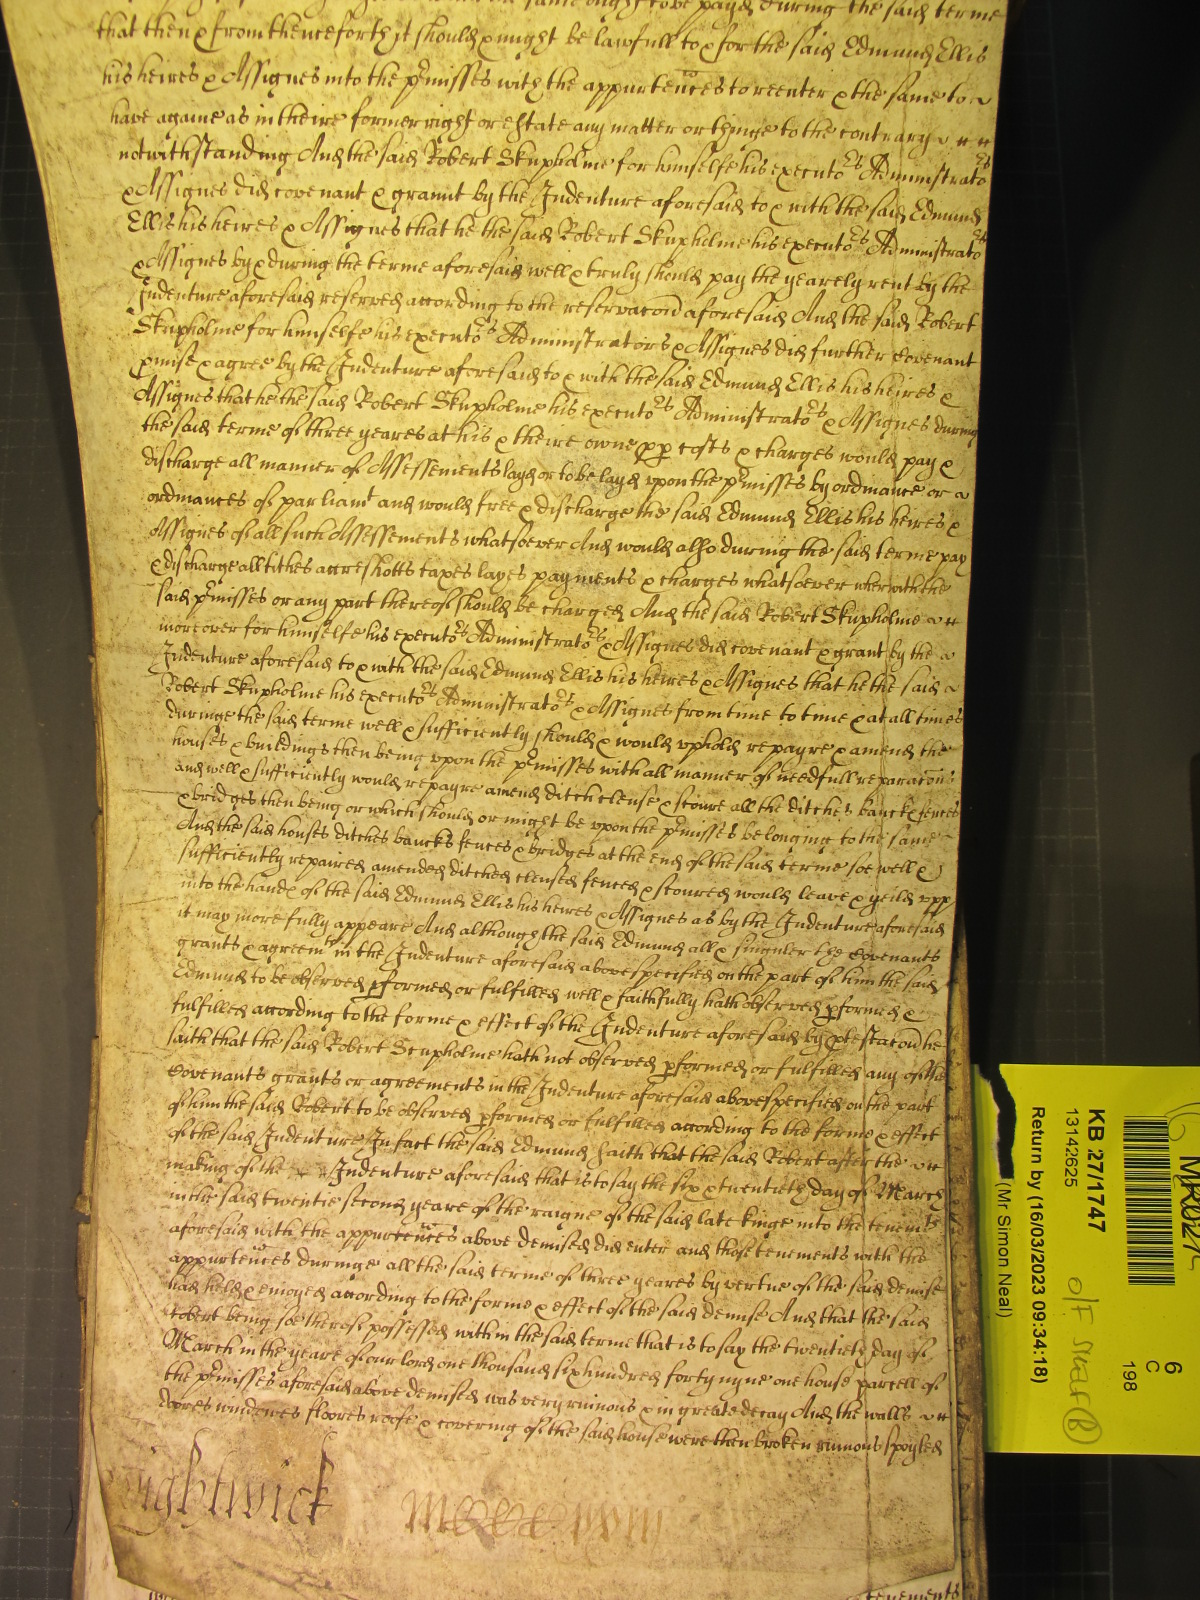 same ought to be payd during the said terme
that then & from thenceforth it should & might be lawfull to & for the said Edmund Ellis
his heires & Assignes into the p^rmisses with the appurtences to reenter & the same to
have againe as in theire former right or estate any matter or thinge to the contrary
notwithstanding And the said Robert Skupholme for himselfe his executo^rs Administrato^rs
& Assignes did covenant & graunt by the Indenture aforesaid to & with the said Edmund
Ellis his heires & Assignes that he the said Robert Skupholme his executo^rs Administrato^rs
& Assignes by & during the terme aforesaid well & truly should pay the yearely rent by the
Indenture aforesaid reserved according to the reservacon aforesaid And the said Robert
Skupholme for himselfe his executo^rs Administrators & Assignes did further Covenant
pmise & agree by the Indenture aforesaid to & with the said Edmund Ellis his heires &
Assignes that he the said Robert Skupholme his executo^rs Administrato^rs & Assignes during
the said terme of three yeares at his & theire owne pp costs & charges would pay &
discharge all manner of Assessements layd or to be layd upon the p^rmisses by ordinance or
ordinances of parliam^t and would free & discharge the said Edmund Ellis his heires &
Assignes of all such Assessements whatsoever And would also during the said terme pay
& discharge all tithes acreshotts taxes layes payments & charges whatsoever wherwith the
said p^rmisses or any part thereof should be charged And the said Robert Skupholme
moreover for himselfe his executo^rs Administrato^rs & Assignes did covenant & grant by the
Indenture aforesaid to & with the said Edmund Ellis his heires & Assignes that he the said
Robert Skupholme his executo^rs Administrato^rs & Assignes from time to time & at all times
duringe the said terme well & sufficiently should & would uphold repayre & amend the
houses & buildings then being upon the p^rmisses with all manner of needfull reparacons
and well & sufficiently would repayre amend ditch clense & scoure all the ditches bancks fences
& bridges then being or which should or might be upon the p^rmisses belonging to the same
And the said houses ditches bancks fences & bridges at the end of the said terme soe well &
sufficiently repaired amended ditched clensed fenced & scoured would leave & yeild upp
into the hands of the said Edmund Ellis his heires & Assignes as by the Indenture aforesaid
it may more fully appeare And although the said Edmund all & singuler the Covenants
grants & agreem^ts in the Indenture aforesaid above specified on the part of him the said
Edmund to be observed pformed or fulfilled well & faithfully hath observed pformed &
fulfilled according to the forme & effect of the Indenture aforesaid by ptestacon he
saith that the said Robert Scupholme hath not observed pformed or fulfilled any of the
Covenants grants or agreements in the Indenture aforesaid above specified on the part
of him the said Robert to be observed pformed or fulfilled according to the forme & effect
of the said Indenture In fact the said Edmund saith that the said Robert after the
making of the Indenture aforesaid that is to say the six & twentieth day of March
in the said twentie second yeare of the raigne of the said late kinge into the tenem^ts
aforesaid with the appurtences above demised did enter and those tenements with the
appurtences duringe all the said terme of three yeares by vertue of the said demise
had held & enioyed according to the forme & effect of the said demise And that the said
Robert being soe thereof possessed within the said terme that is to say the twentieth day of
March in the yeare of our lord one thousand six hundred forty nyne one house parcell of
the p^rmisses aforesaid above demised was very ruinous & in greate decay And the walls
doores windowes floores roofe & covering of the said house were then broken ruinous spoyled
tenements
6
C
198
KB 27/1747
13142625
Return by (16/03/2023 09:34:18)
(Mr Simon Neal)